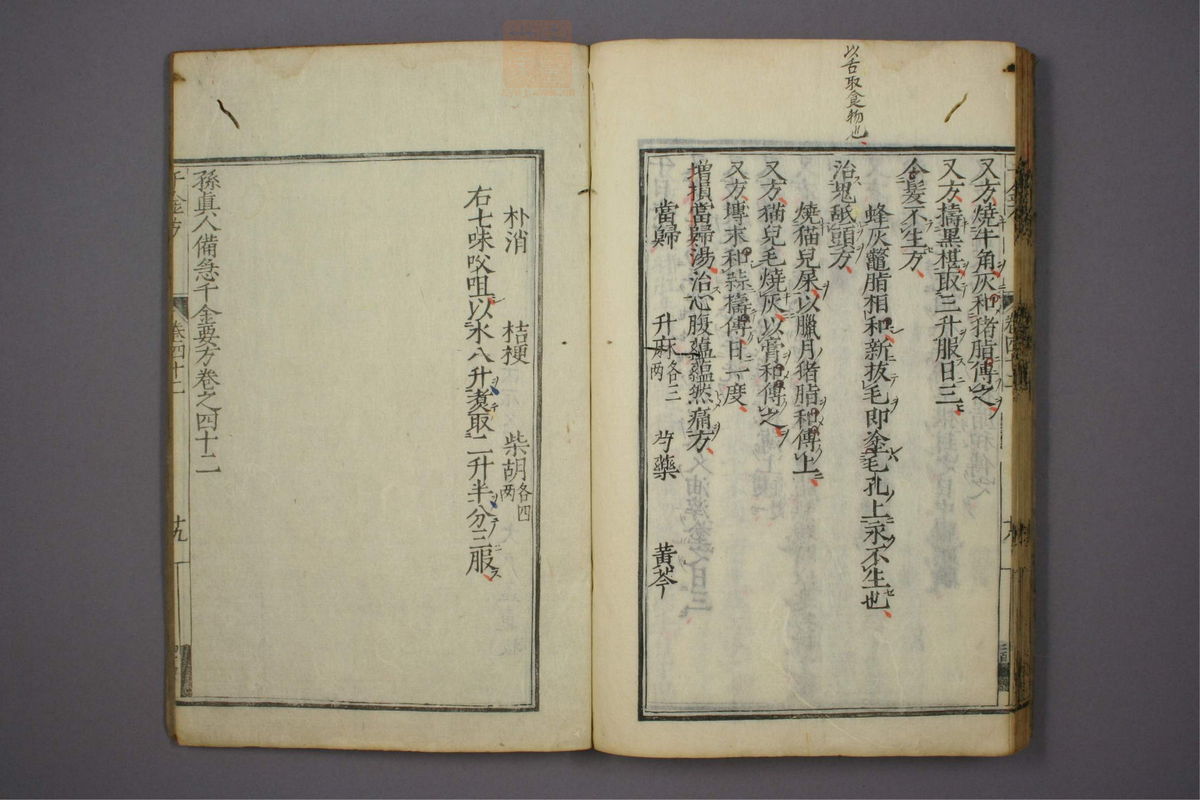 以舌取食物也
又方燒牛角灰和猪脂傅之
又方擣黑椹取三升服日三
令髮不生方
蜂灰鼈脂相和新拔毛即塗毛孔上永不生也
治鬼舐頭方
燒猫兒屎以臘月猪脂和傅上
又方猫兒毛燒灰以膏和傅之
又方塼末和蒜擣傅日一度
增損當歸湯治心腹蘊蘊然痛方
當歸 升麻各三兩 芍藥 黃芩
朴消 桔梗 柴胡各四兩
右七味㕮咀以水八升煑取二升半分三服
孫眞人備急千金要方卷之四十二
千金方 卷四十二 十九